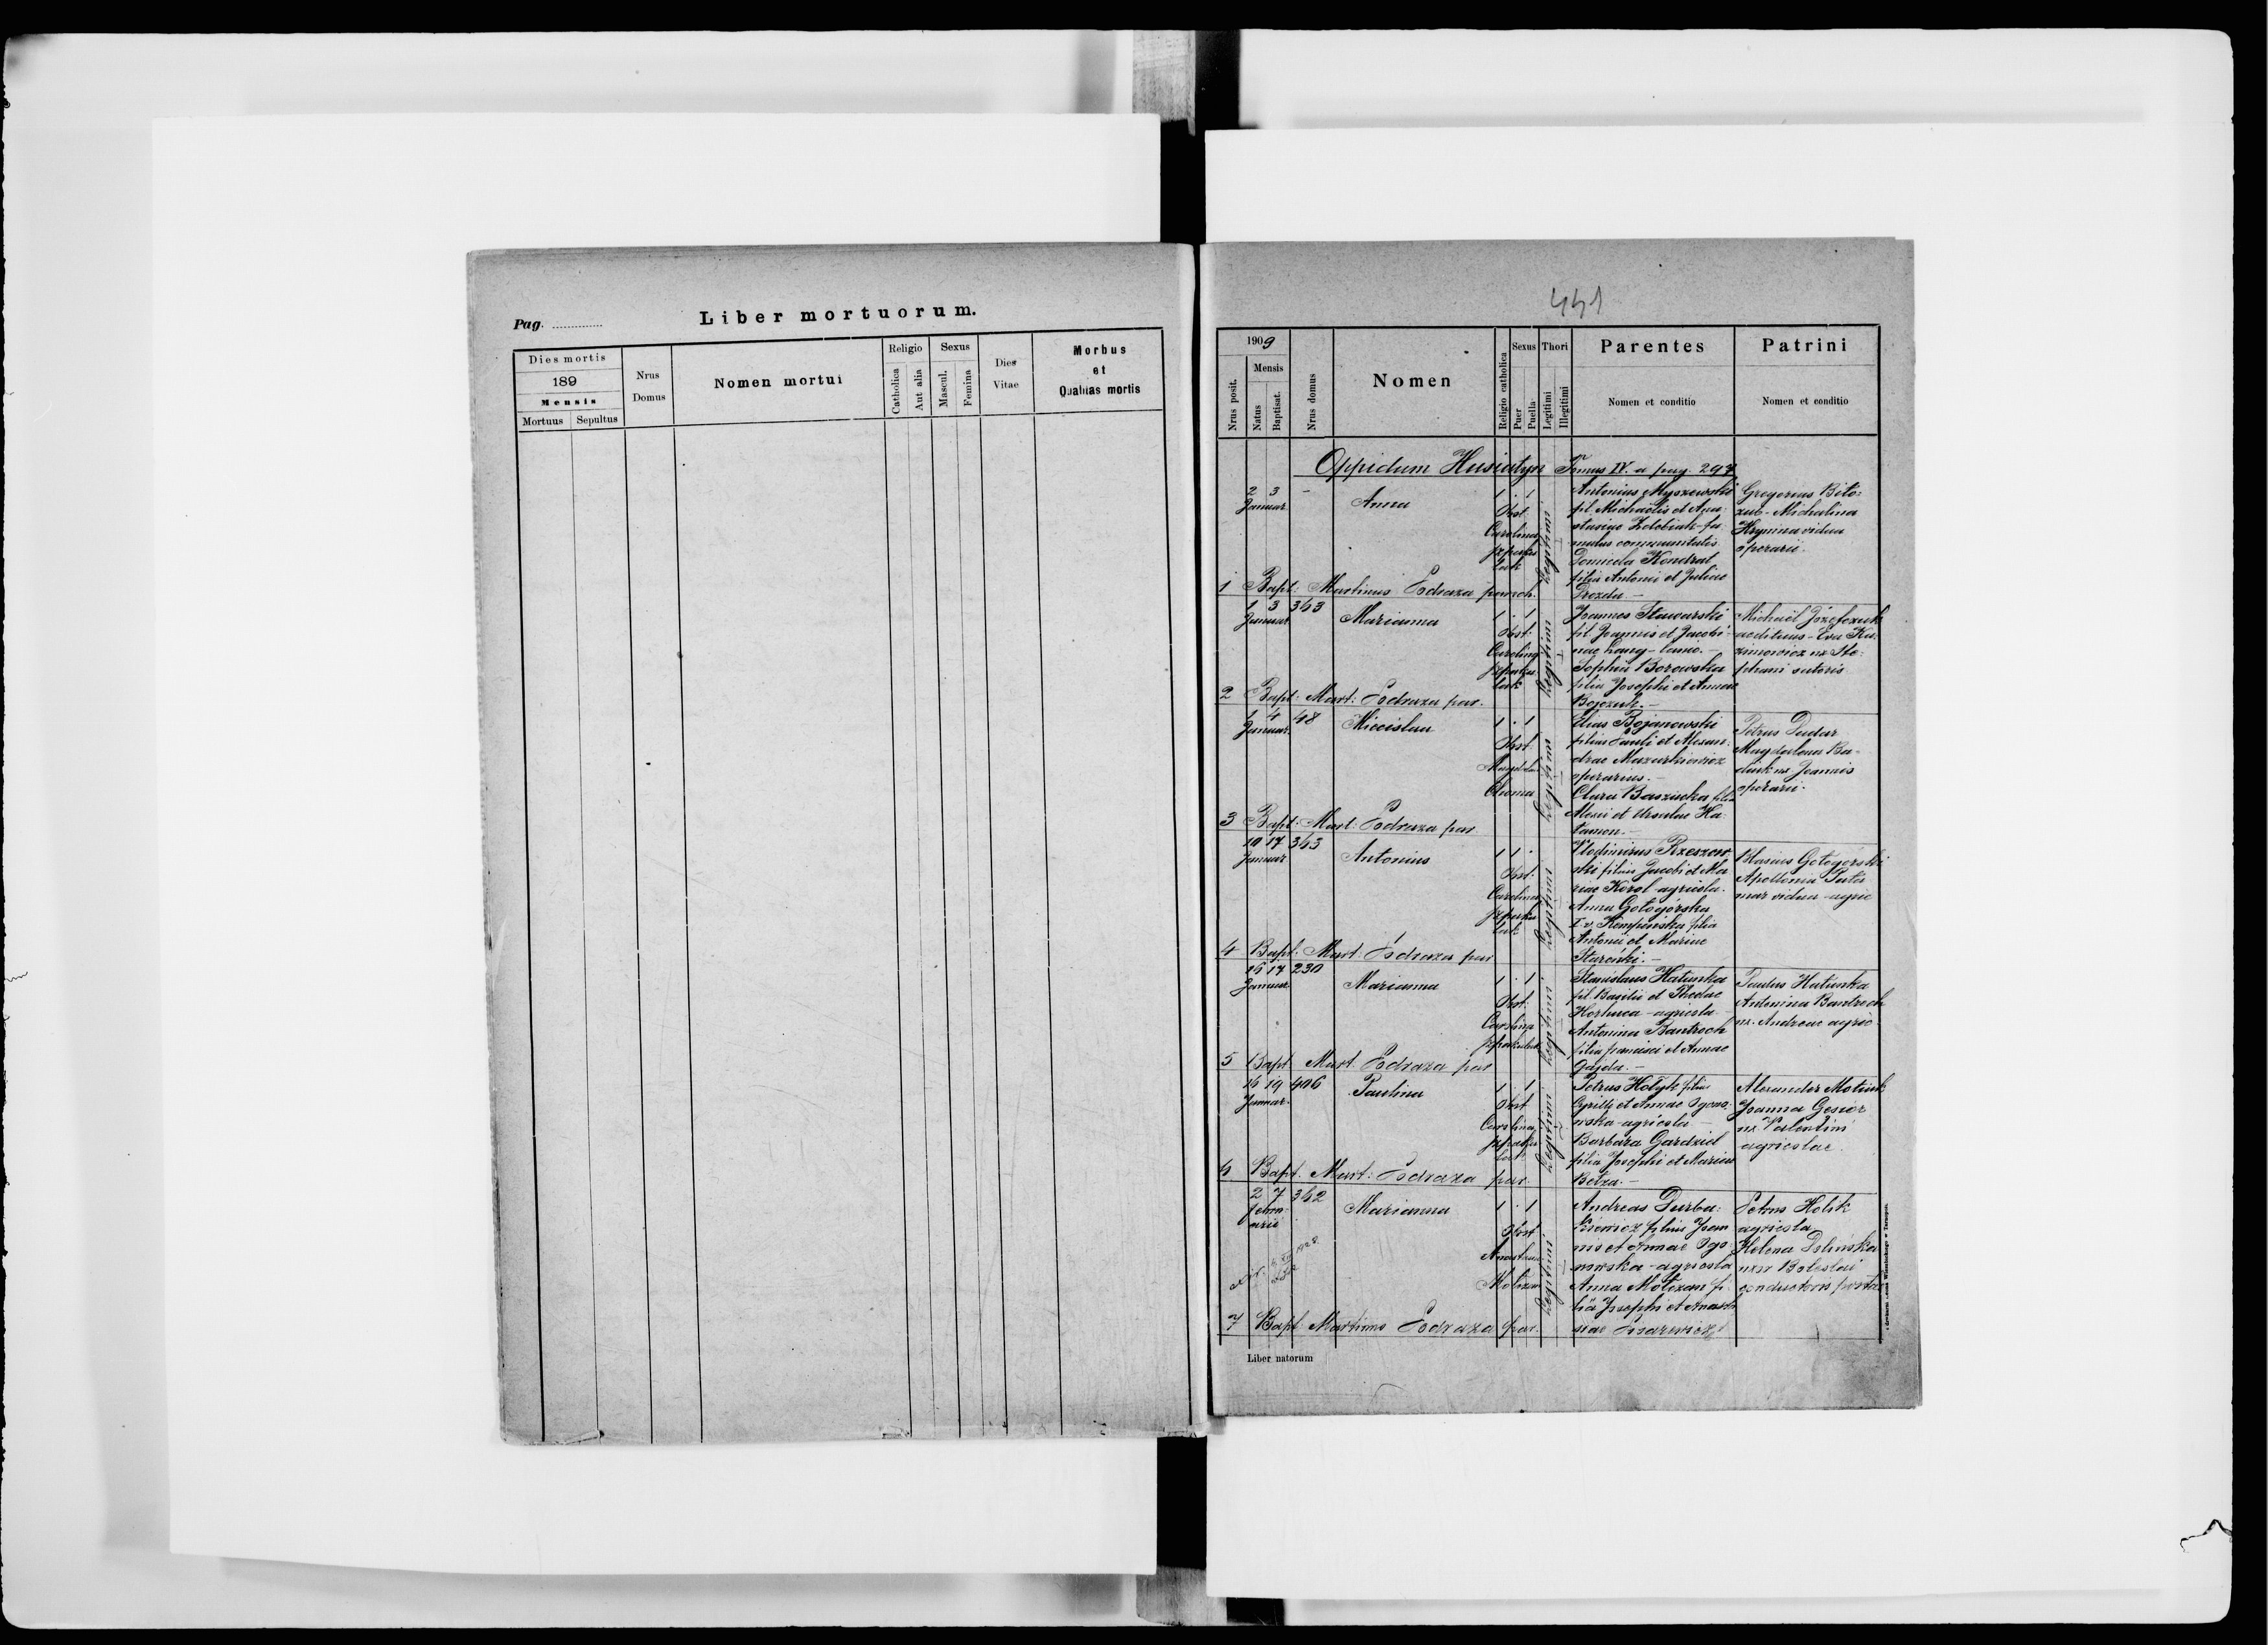 Pag. ..............
Liber mortuorum.
Dies mortis
189
Mensis
Mortuus Sepultus
Nrus
Domus
Nomen mortui
Religio
Catholica
Aut alia
Sexus
Mascul.
Femina
Dies
Vitae
Morbus
et
Qualitas mortis
441
1909
Nrus posit.
Mensis
Natus
Baptisat.
Nrus domus
Nomen
Religio catholica
Sexus
Puer
Puella
Thori
Legitimi
Illegitimi
Parentes
Nomen et conditio
Patrini
Nomen et conditio
Oppidum Husiatyn Tomus IV. a pag. 297
2 3 -
Januar
Anna
1 . 1
Obst.
Carolina
Legitimi
Antonius Myszewski
fil. Michaelis et Ana-
stasiae
mulus communitatis
Kondrat
filia Antonii et Juliae
Drozda -
Gregorius
Michalina
vidua
operarii.
1 Bapt: Martinus Podraza paroch.
1 3 343
Januar
Marianna
1 . 1
Obst:
Carolina
Legitimi
Joannes
fil. Joannis et Jacobi-
nae Lang - lanio. -
Sophia Borowska
filia Josephi et Annae
Bojczuk. -
Michaël Józefczuk
aedituus - Eva Ka-
zimowicz ux Ste-
phani sutoris
2 Bapt: Mart: Podraza par.
1 4 48
Januar.
Miecislaa
1 . 1
Obst:
Choma
Legitimi
Elias Bojanowski
filius Pauli et Alexan-
drae Mazurkiewicz
operarius. -
Clara Baszucka filia
Alexii et Ursulae Ha-
tamon. -
Petrus Dudar
Magdalena Ba-
ux Joannis
operarii.
3 Bapt: Mart: Podraza par
10 17 343
Januar
Antonius
1 1 .
Obst:
Carolina
Legitimi
Vlodimirus Rzeszow-
ski filius Jacobi et Ma-
riae Korol agricola.
Anna Gołogórska
I v. Kempińska filia
Antonii et Mariae
Starońki. -
Blasius Gołogórski
Apollonia
vidua agric
4 Bapt: Mart: Podraza par
16 17 230
Januar
Marianna
1 . 1
Obst:
Carolina
Legitimi
Stanislaus Hatunka
fil. Basilii et Theclae
agricola
Antonina Bantroch
filia Francisci et Annae
Gajda. -
Paulus Hatunka
Antonina Bantroch
ux. Andreae agric
5 Bapt Mart. Podraza par
16 19 406
Januar.
Paulina
1 . 1
Obst
Carolina
Legitimi
Petrus Hołyk filius
Cyrilli et Annae Ogono-
wska agricola -
Barbara Gardziel
filia Josephi et Mariae
Belza. -
Alexander
Joanna Gesior
ux Valentini
agricolae.
6 Bapt. Mart: Podraza par.
2 7 342
Febru-
arii
Marianna
1 . 1
Obst
Anastasia
Motizan
Legitimi
Andreas Durba-
kiewicz filius Joan-
nis et Annae Ogo-
nowska - agricola
Anna Motizan fi-
lia Josephi et Anasta-
siae
Petrus Holik
agricola
Helena Dolinska
uxor Boleslai
conductoris
7 Bapt Martinus Podraza par.
Liber natorum